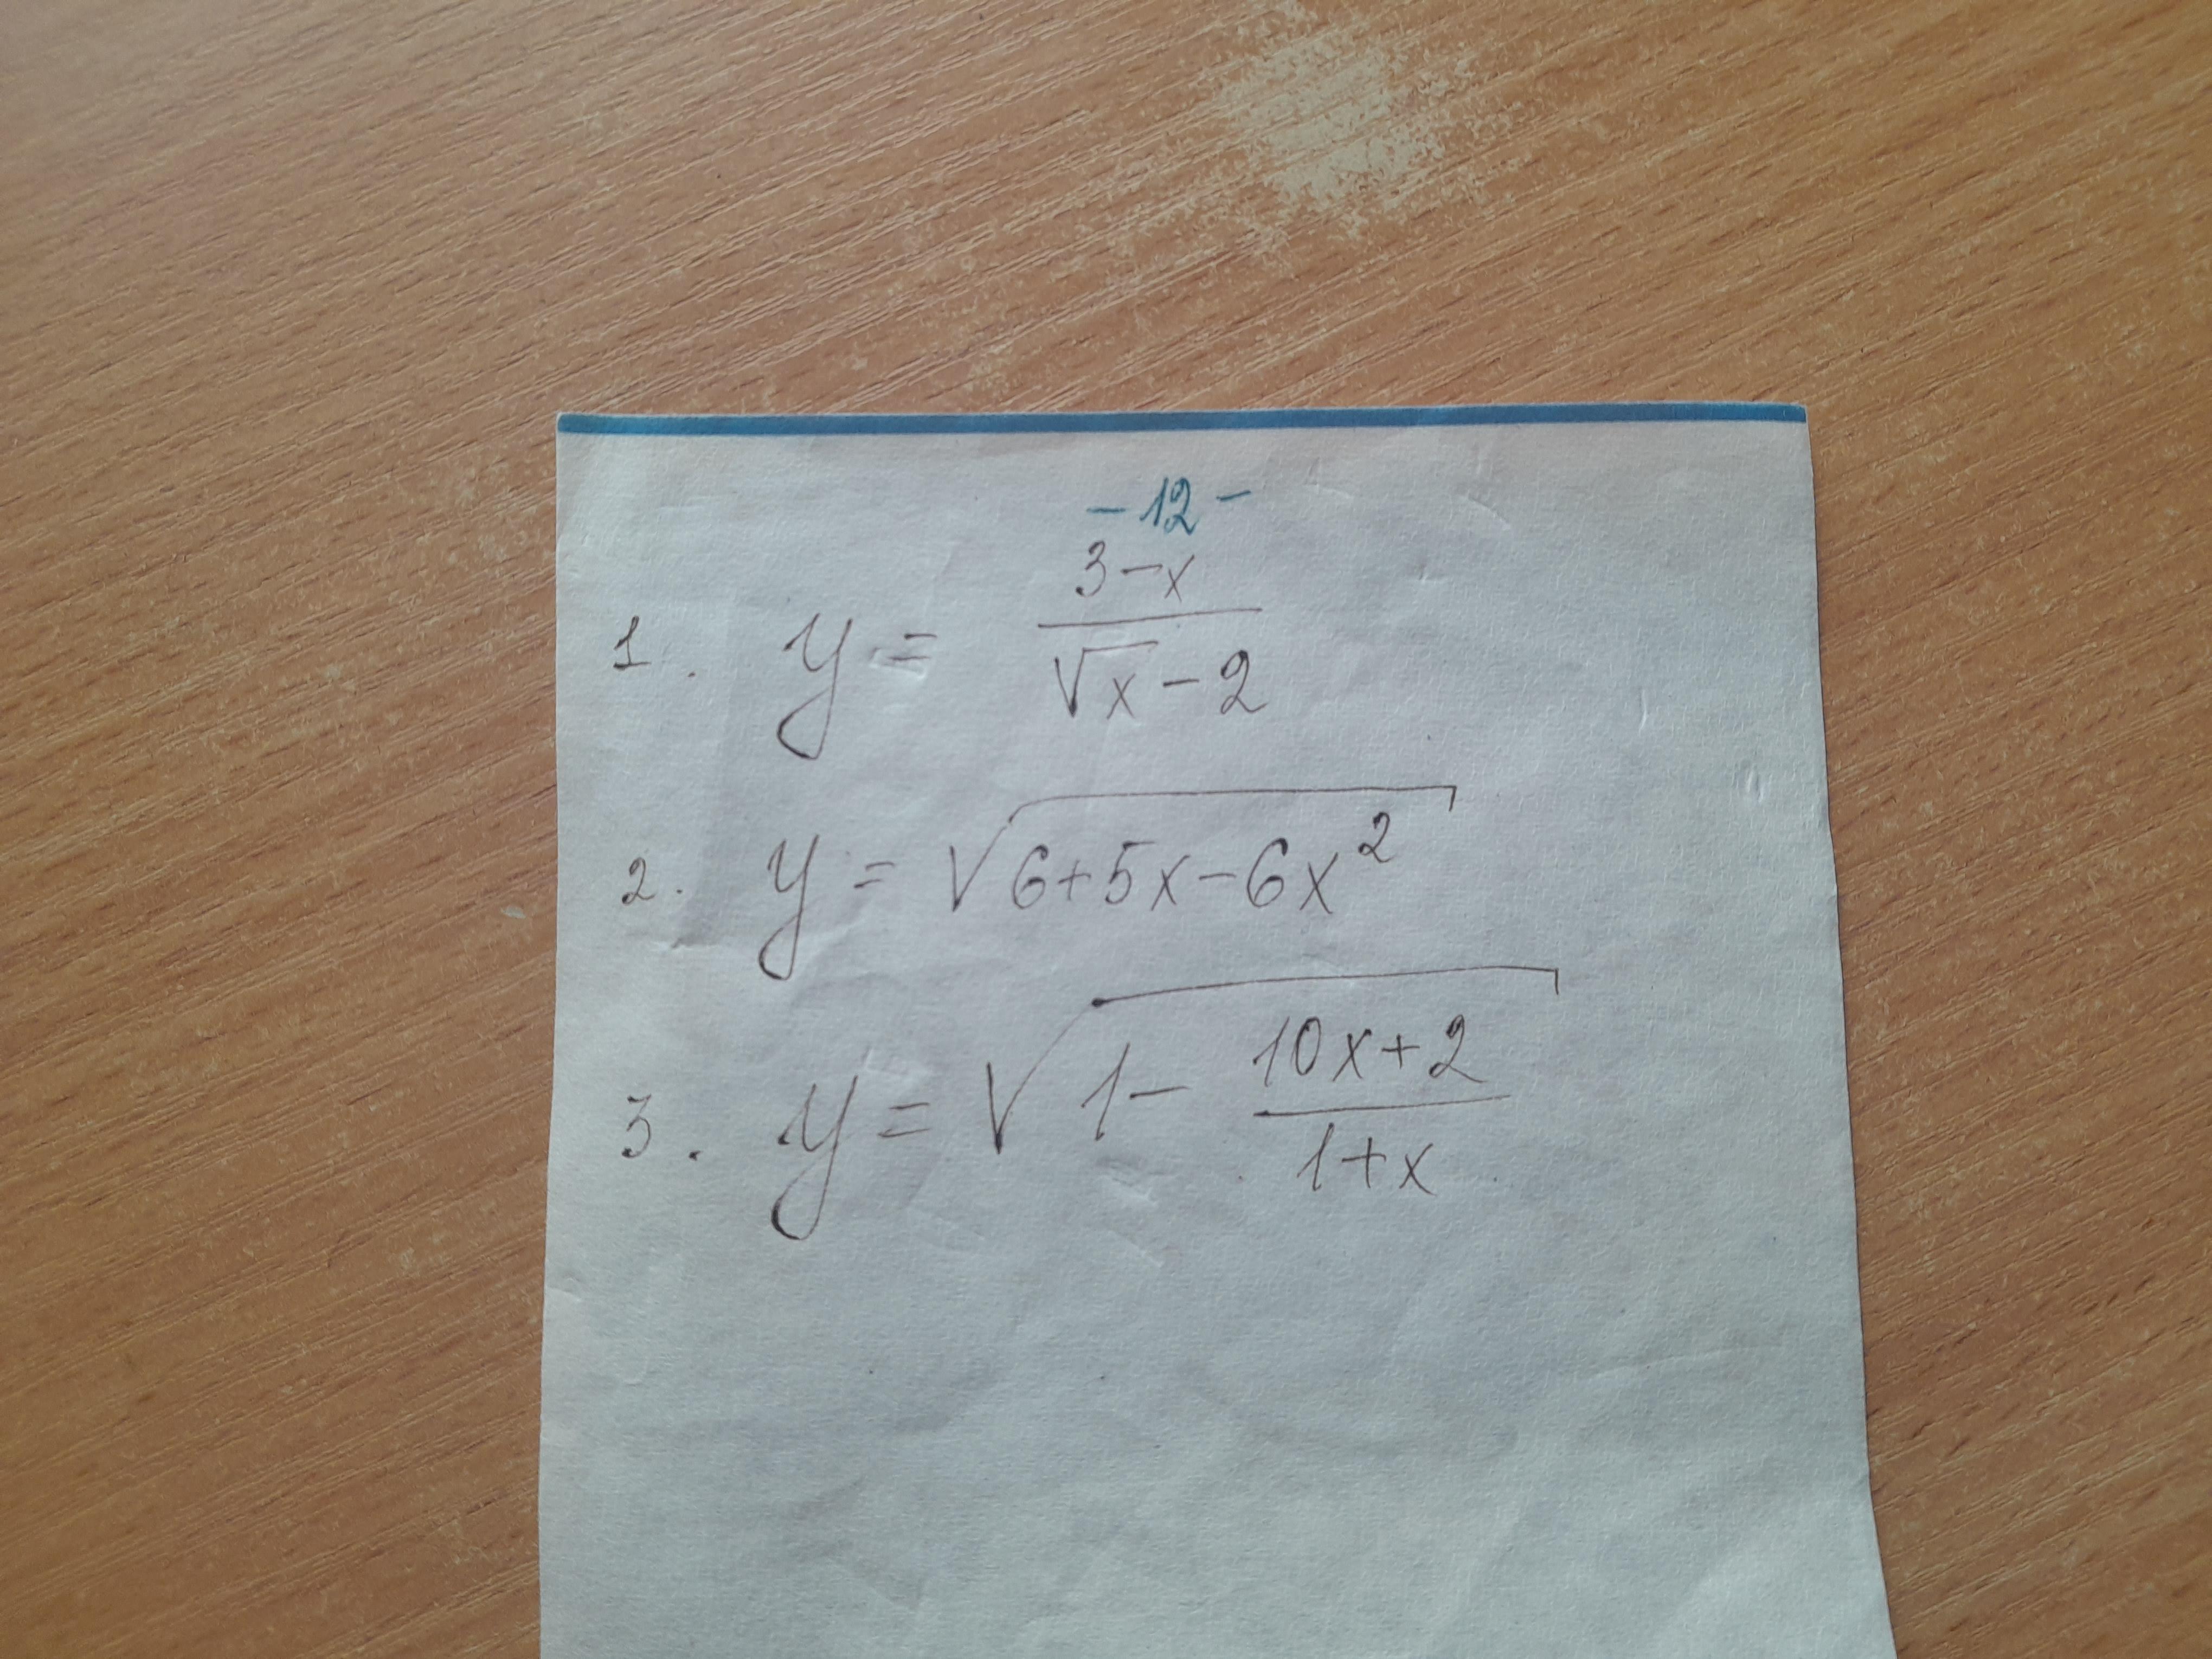 - 12 -
1. y = \frac{3-x}{\sqrt{x}-2}
2. y = \sqrt{6+5x-6x^2}
3. y = \sqrt{1-\frac{10x+2}{1+x}}